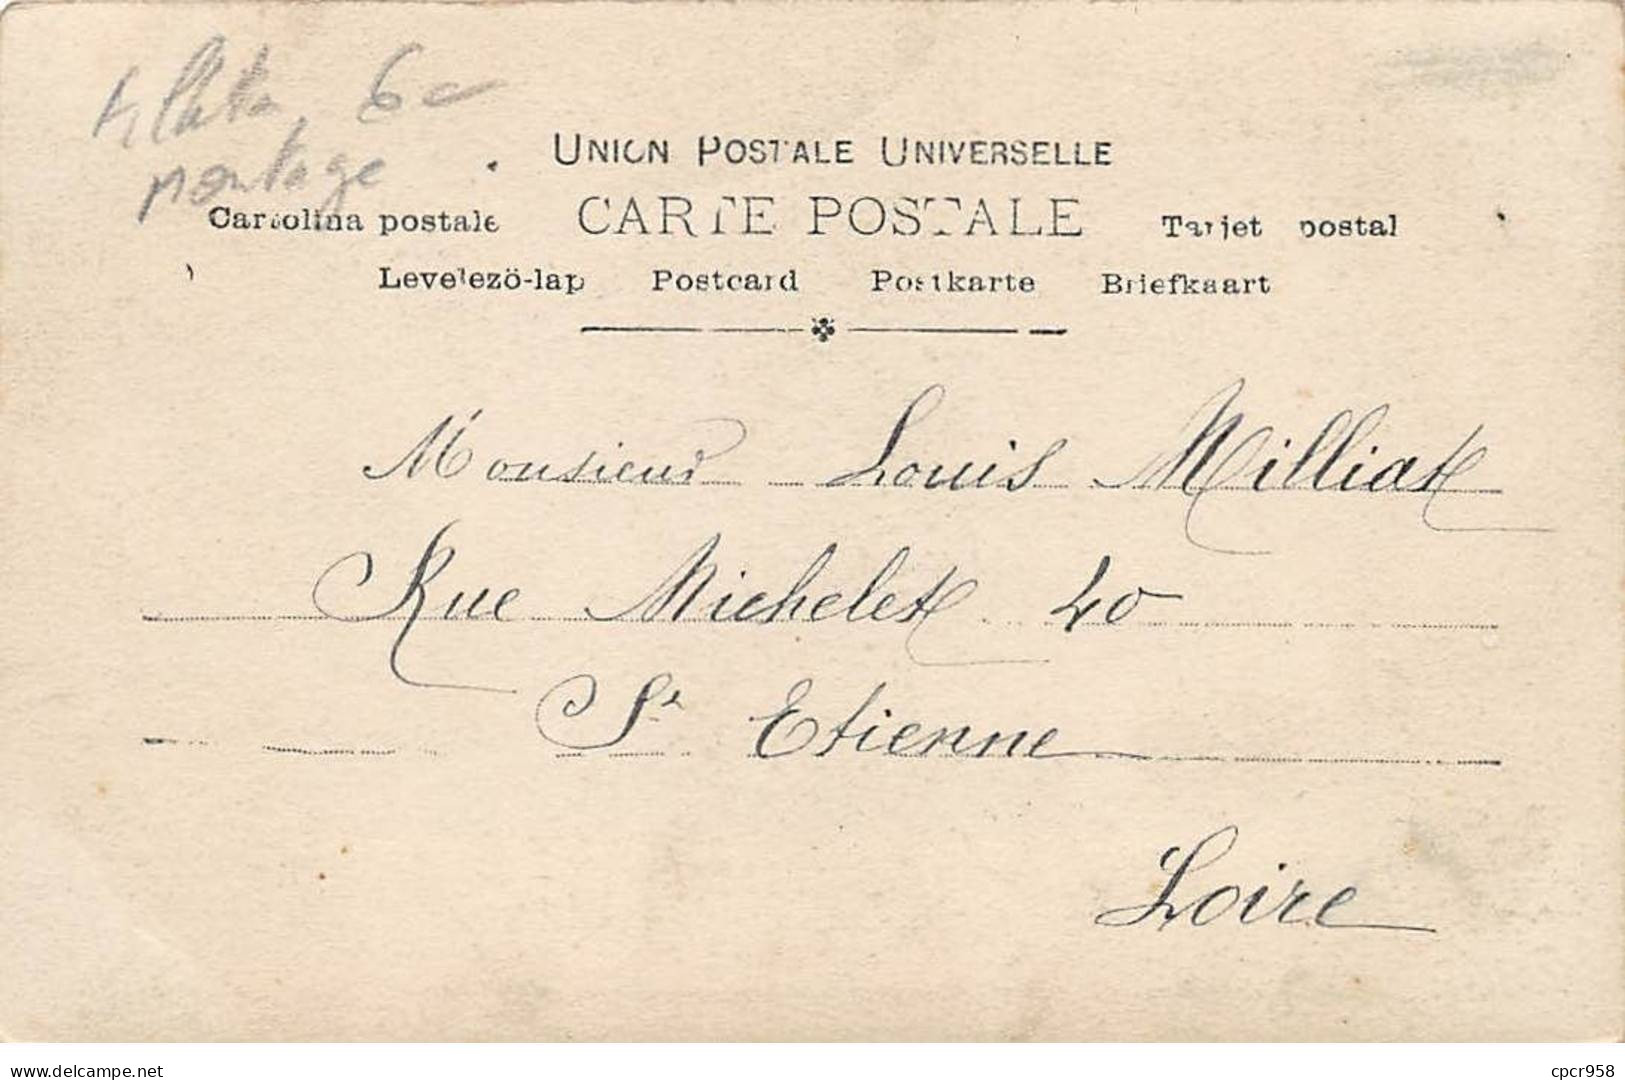 6c
montage
UNION POSTALE UNIVERSELLE
CARTE POSTALE
Cartolina postale Tarjet postal
Levelezö-lap Postcard Postkarte Briefkaart
Monsieur Louis Milliat
Rue Michelet 40
St Etienne
Loire
www.delcampe.net cpcr958